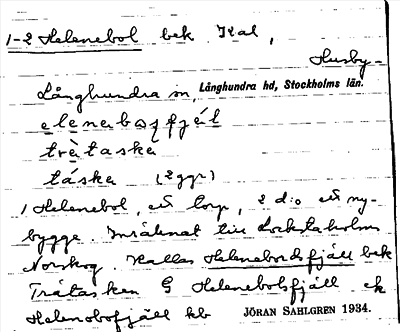 1-2 Helenebol bek Kal,
Husby-
Långhundra sn, Långhundra hd, Stockholms län.
elenabosfjél
trètaska
táska (2 ggr)
1 Helenebol, ett torp, 2 d:o ett ny-
bygge. Inräknat till Lockstaholms
Norskog. Kallas Helenebordsfjäll bek
Tråtasken G Helenebolsfjäll ek
Helenebofjäll kb JÖRAN SAHLGREN 1934.